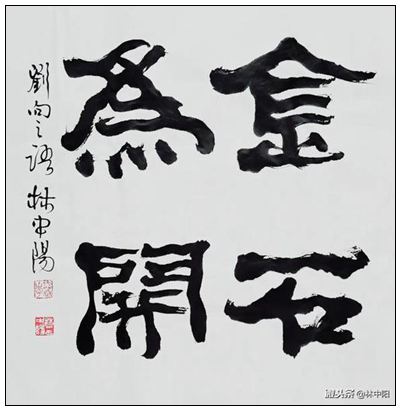 金石
為開
劉向之語 林中陽
头条 @林中阳